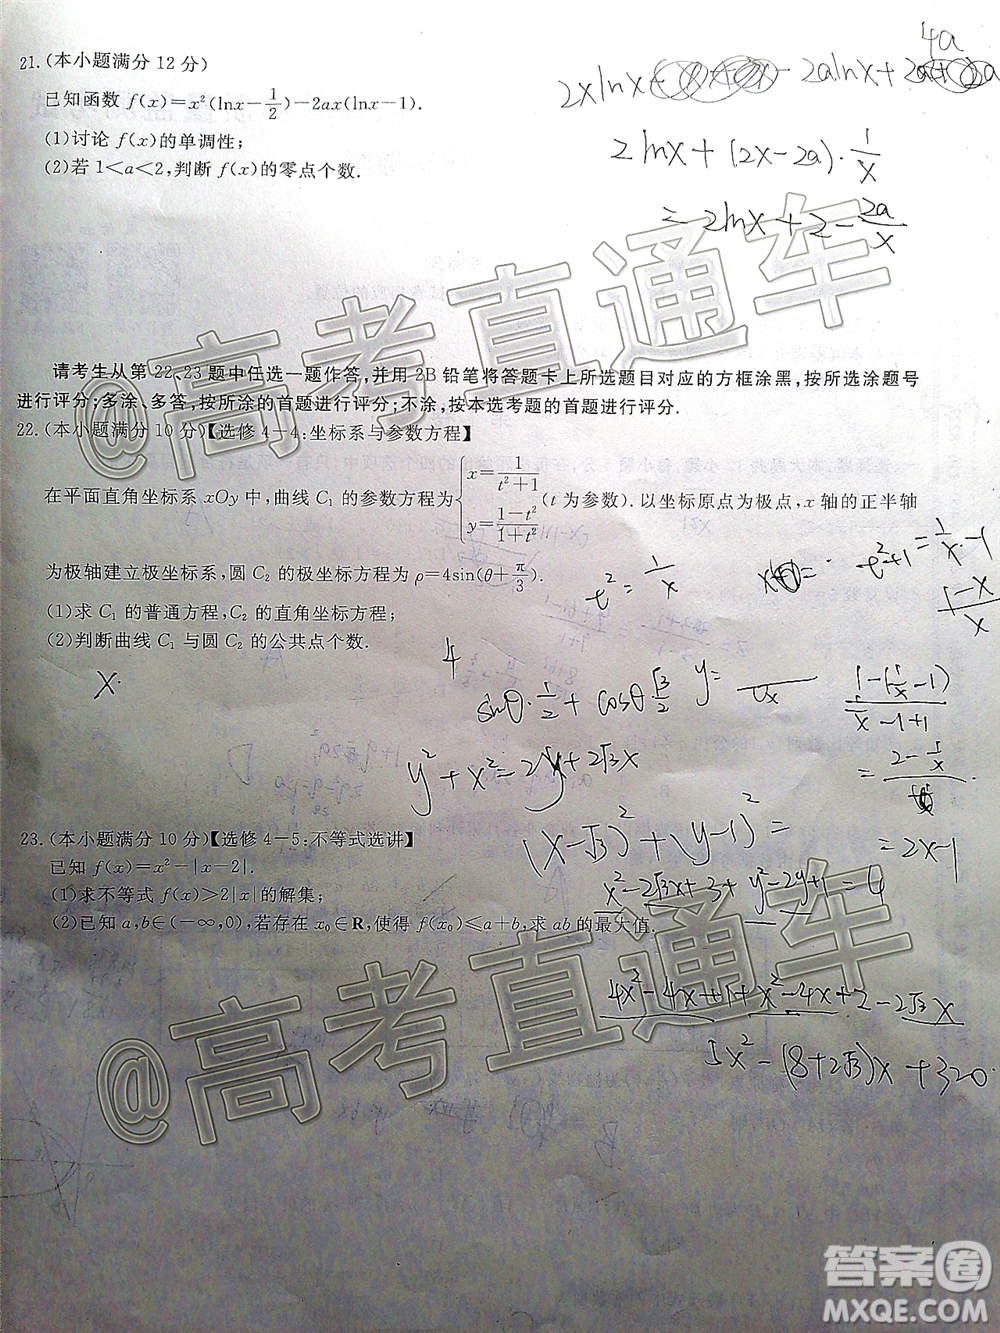 21.(本小题满分12分)
已知函数 f(x)=x²(lnx-1/2)-2ax(lnx-1).
(1)讨论 f(x)的单调性;
(2)若 1<a<2,判断 f(x)的零点个数.
4a
2xlnx
-2alnx+
2lnx+(2x-2a)·1/x
=2lnx+2-2a/x
@高考直通车
请考生从第22、23题中任选一题作答,并用2B铅笔将答题卡上所选题目对应的方框涂黑,按所涂题号
进行评分;多涂、多答,按所涂的首题进行评分;不涂,按本选考题的首题进行评分.
22.(本小题满分10分)【选修4-4:坐标系与参数方程】
在平面直角坐标系 xOy 中,曲线 C₁ 的参数方程为{x=1/(t²+1) y=(1-t²)/(1+t²)(t 为参数).以坐标原点为极点,x 轴的正半轴
为极轴建立极坐标系,圆 C₂ 的极坐标方程为 ρ=4sin(θ+π/3).
(1)求 C₁ 的普通方程,C₂ 的直角坐标方程;
(2)判断曲线 C₁ 与圆 C₂ 的公共点个数.
t²=1/x
t²+1=1/x-1
1-x/x
x.
4
sinθ·1/2+cosθ·√3/2
y=
1-(1/x-1)
1/x-1+1
y²+x²=2y+2√3x
=2-1/x
=2x-1
(x-√3)²+(y-1)²
x²-2√3x+3+y²-2y+1=4
23.(本小题满分10分)【选修4-5:不等式选讲】
已知 f(x)=x²-|x-2|.
(1)求不等式 f(x)>2|x|的解集;
(2)已知 a,b∈(-∞,0),若存在 x₀∈R,使得 f(x₀)≤a+b,求 ab 的最大值.
4x²-4x+1+x²-4x+2-2√3x
5x²-(8+2√3)x+3=0.
@高考直通车
答案圈
MXQE.COM